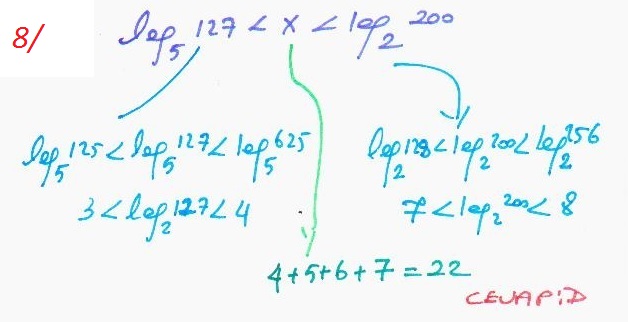 8/
log₅ 127 < x < log₂ 200
log₅ 125 < log₅ 127 < log₅ 625
log₂ 128 < log₂ 200 < log₂ 256
3 < log₂ 127 < 4
7 < log₂ 200 < 8
4+5+6+7=22
CEVAP:D